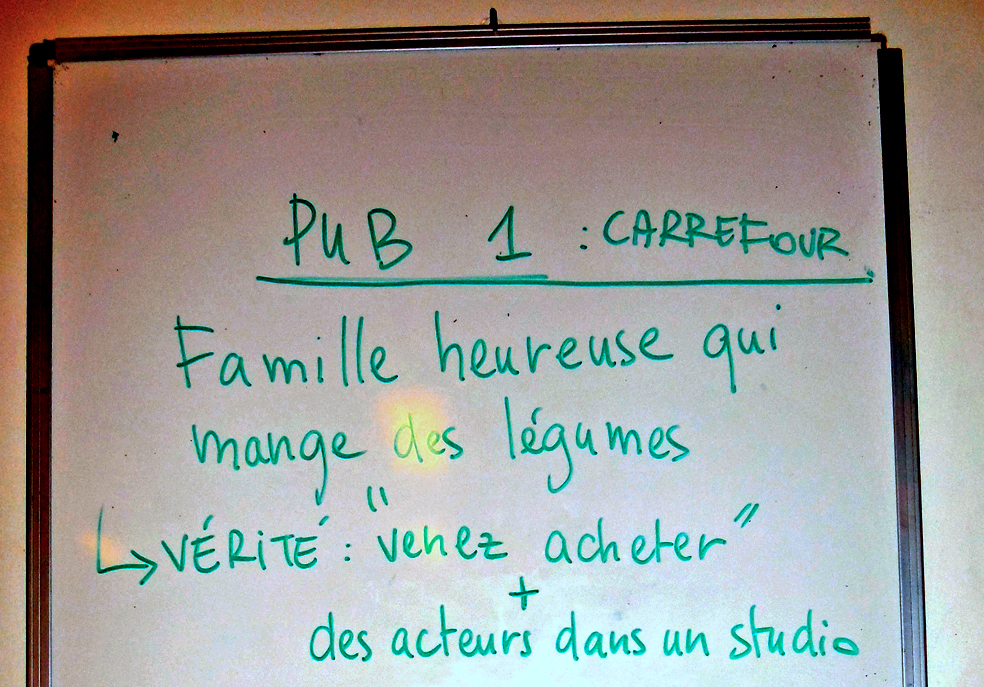 PUB 1 : CARREFOUR
Famille heureuse qui
mange des légumes
↳ VÉRITÉ : "venez acheter"
+
des acteurs dans un studio